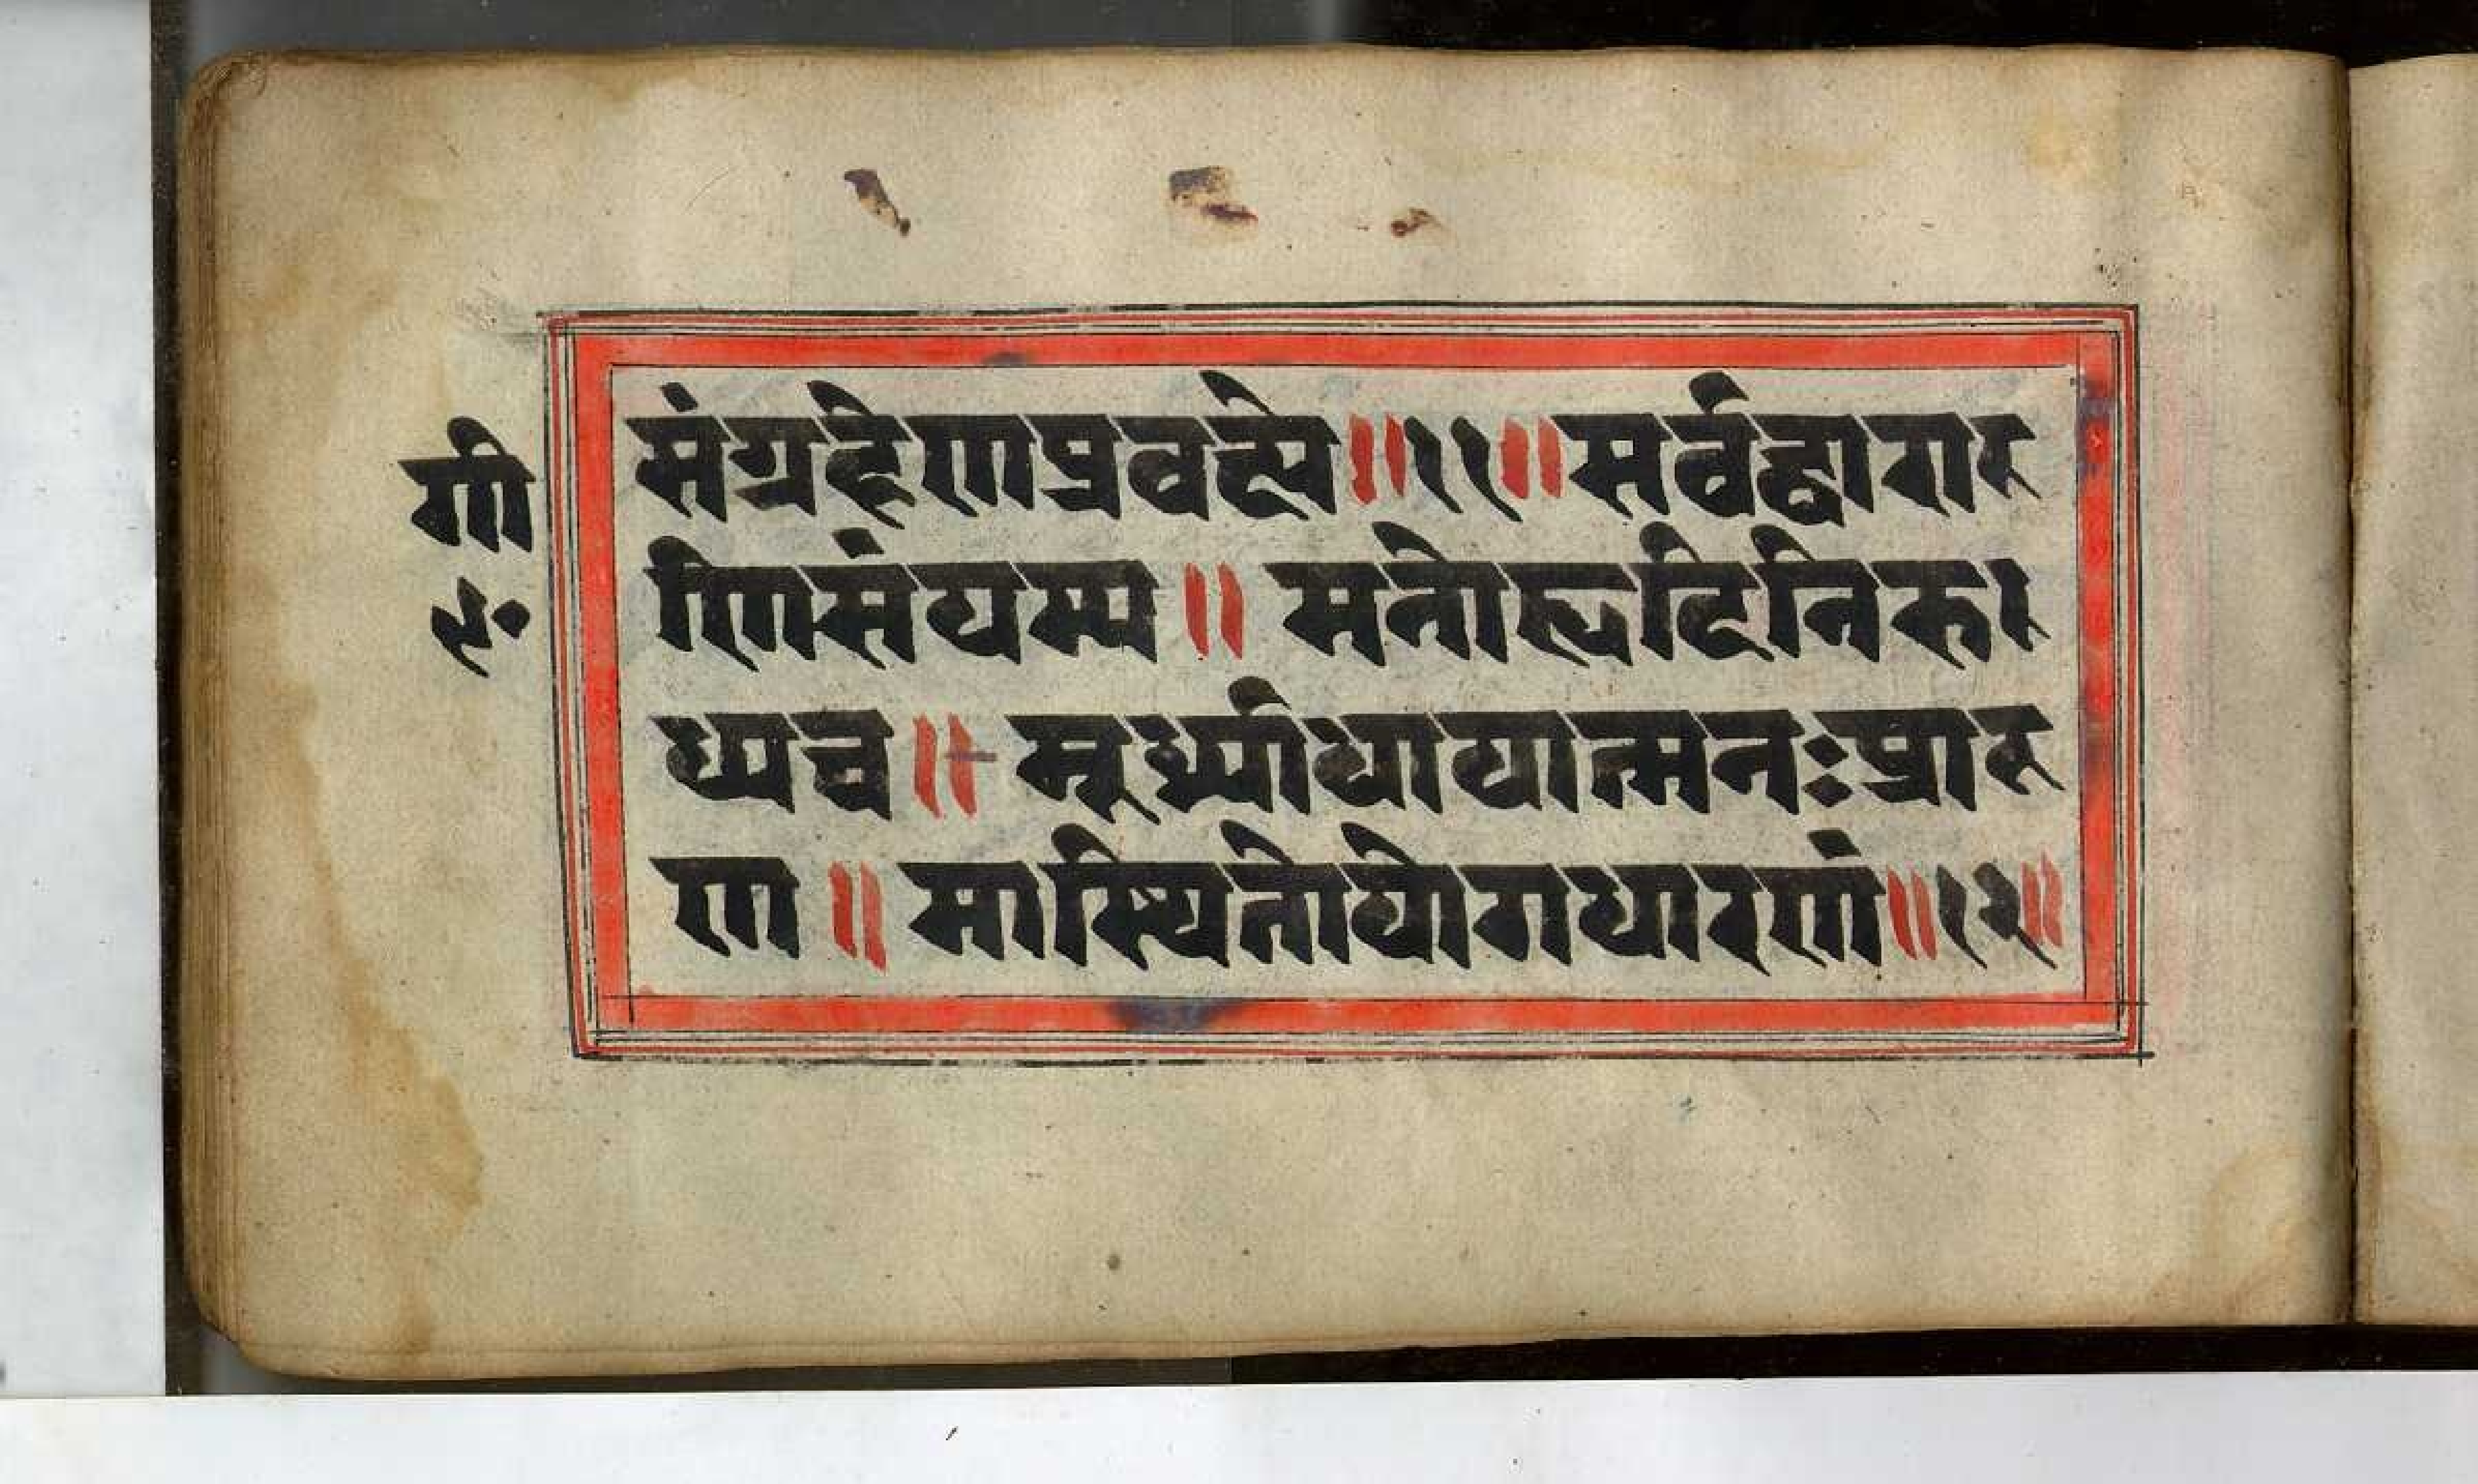 संग्रहेणप्रवक्ष्ये॥११॥सर्वद्वारार
गी
णिसंयम्य॥मनोहृदिनिरु
९०
ध्यच॥मूर्ध्न्याधायात्मनःप्रार
ण॥मास्थितोयोगधारणां॥१२॥